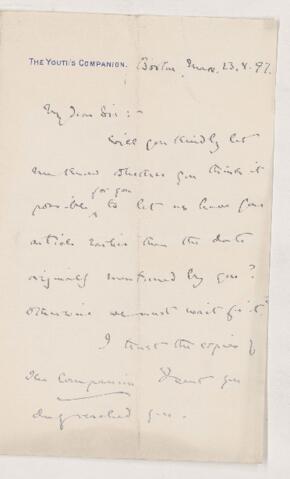 THE YOUTH'S COMPANION. Boston, Mass. 23.8.97.
My dear Sir:-
Will you kindly let
me know whether you think it
for you
possible to let us have your
article earlier than the date
originally mentioned by you?
Otherwise we must wait for it.
I trust the copies of
The Companion I sent you
duly reached you.